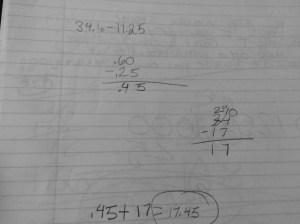 34.6-17.25
.60
-.25
.45
-17
17
.45+17=17.45